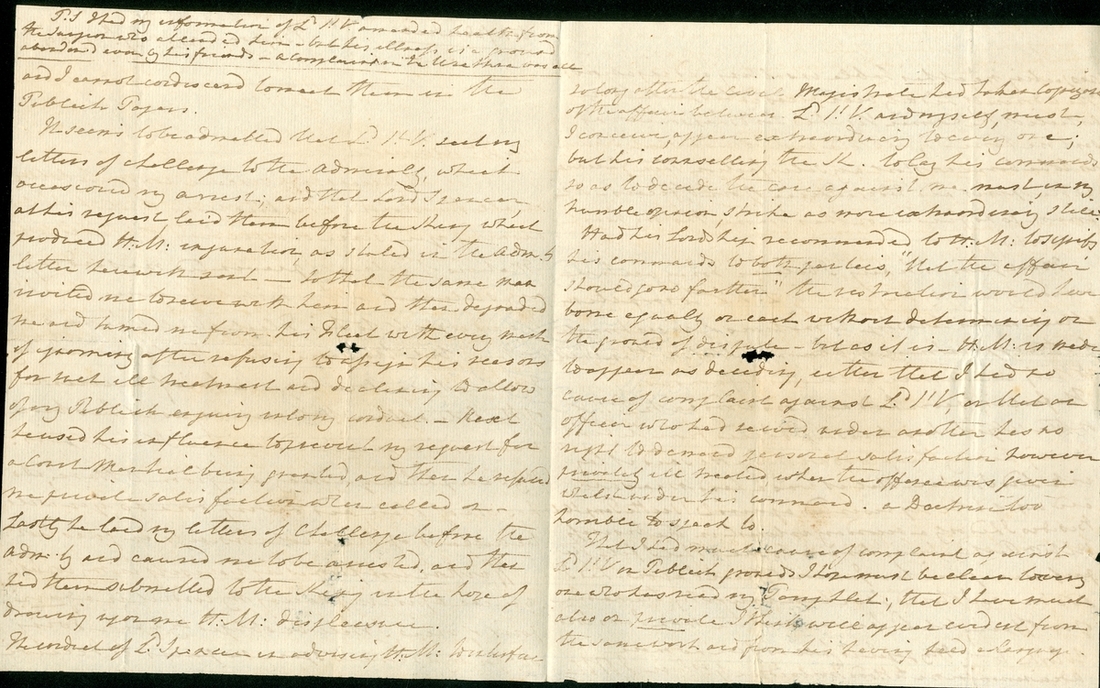 P.S. I had my information of Ld. St.V. amended health from
the Surgeon who attended him - but his illness is a ground
abandoned even by his friends -
and I cannot condescend to meet them in the
Publick Papers.
It seems to be admitted that Ld. St. V. sent my
letters of challenge to the Admiralty, which
occasioned my arrest; and that Lord Spencer,
at his request laid them before the King which
produced H: M: injunction, as stated in the Adm:ty
letter herewith sent - so that the same man
invited me to serve with him and then degraded
me and turned me from his Fleet with every mark
of ignominy after refusing to assign his reasons
for such ill treatment and declining to allow
of any Publick enquiry into my conduct. - Next
he used his influence to prevent my request for
a Court Martial being granted, and then he refused
me private satisfaction when called on -
Lastly he laid my letters of Challenge before the
Adm:ty and caused me to be arrested, and then
had them submitted to the King in the hope of
drawing upon me H: M: displeasure.
The conduct of Ld. Spencer in advising H: M: to interfere
so long after the Civil Magistrate had taken cognizance
of the affair between Ld. St. V. and myself, must,
I conceive, appear extraordinary to every one;
but his counselling the K. to lay his commands
so as to decide the case against me must, in my
humble opinion, strike as more extraordinary still.
Had his Lordship recommended to H: M: to
his commands to both parties, "that the affair
should go no farther" the restriction would have
borne equally on each without determining on
the ground of dispute - but as it is - H: M: is made
to appear as deciding, either that I had no
cause of complaint against Ld. St. V, or that an
officer who had served under another has no
right to demand personal satisfaction however
privately ill treated when the offence was given
whilst under his command. a Doctrine too
horrible to speak to.
That I had much cause of complaint against
Ld. St V on Publick grounds I hope must be clear to every
one who has read my Pamphlet; that I have much
also on private I think will appear evident from
the same work and from his having